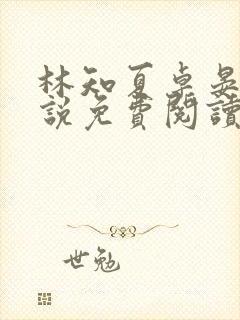 林知夏卓晏
説免費閱讀
世勉